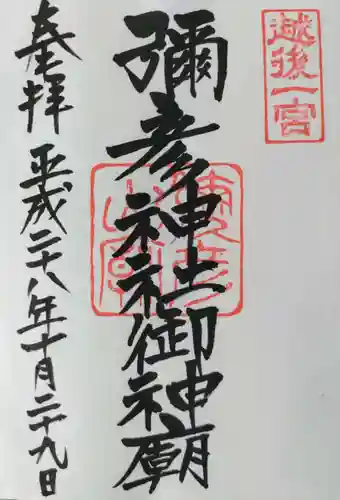 越後一宮
彌彦神社御神廟
奉拝 平成二十八年十月二十九日